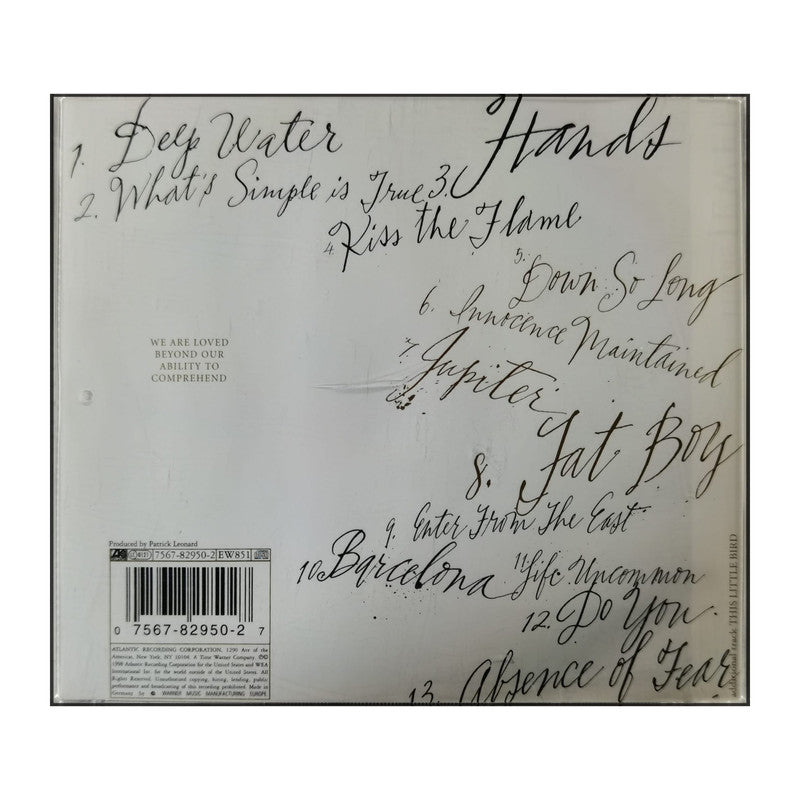 1. Deep Water
2. What's Simple is True
3. Hands
4. Kiss the Flame
5. Down So Long
6. Innocence Maintained
7. Jupiter
8. Fat Boy
9. Enter From The East
10. Barcelona
11 Life Uncommon
12. Do You
13. Absence of Fear
additional track THIS LITTLE BIRD
WE ARE LOVED
BEYOND OUR
ABILITY TO
COMPREHEND
Produced by Patrick Leonard
7567-82950-2 EW851
0 7567-82950-2 7
ATLANTIC RECORDING CORPORATION, 1290 Ave of the
Americas, New York, NY 10104. A Time Warner Company. ©℗
1998 Atlantic Recording Corporation for the United States and WEA
International Inc. for the world outside of the United States. All
Rights Reserved. Unauthorised copying, hiring, lending, public
performance and broadcasting of this recording prohibited. Made in
Germany by WARNER MUSIC MANUFACTURING EUROPE